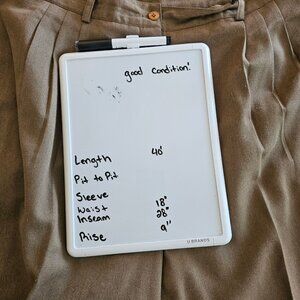 good Condition!
Length 40'
Pit to Pit
Sleeve
Waist 18"
Inseam 28"
Rise 9"
U BRANDS